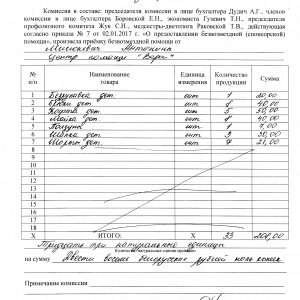 Комиссия в составе: председателя комиссии в лице бухгалтера Дудич А.Г., членов
комиссии в лице бухгалтера Боровской Е.Н., экономиста Гузевич Т.Н., председателя
профсоюзного комитета Жук С.Н., медсестры-диетолога Раковской Т.В., действующая
согласно приказа № 7 от 02.01.2017 г. «О предоставлении безвозмездной (спонсорской)
помощи», произвела приёмку безвозмездной помощи от
Центр помощи "Вера"
№ п/п Наименование товара Единица измерения Количество продукции Сумма
1 дет. шт 1
2 дет. шт 8 40,00
3 дет. шт 5 50,00
4 Майка дет. шт 8 40,00
5 шт 1 7,00
6 Шапка дет. шт 3 30,00
7 Шорты дет. шт 7 21,00
8
9
10
11
12
13
14
15
16
17
18
Х ИТОГО: Х 33 208,00
Тридцать три натуральные единицы
Количество натуральных единиц прописью
на сумму Двести восемь белорусских рублей ноль копеек
Примечание комиссии